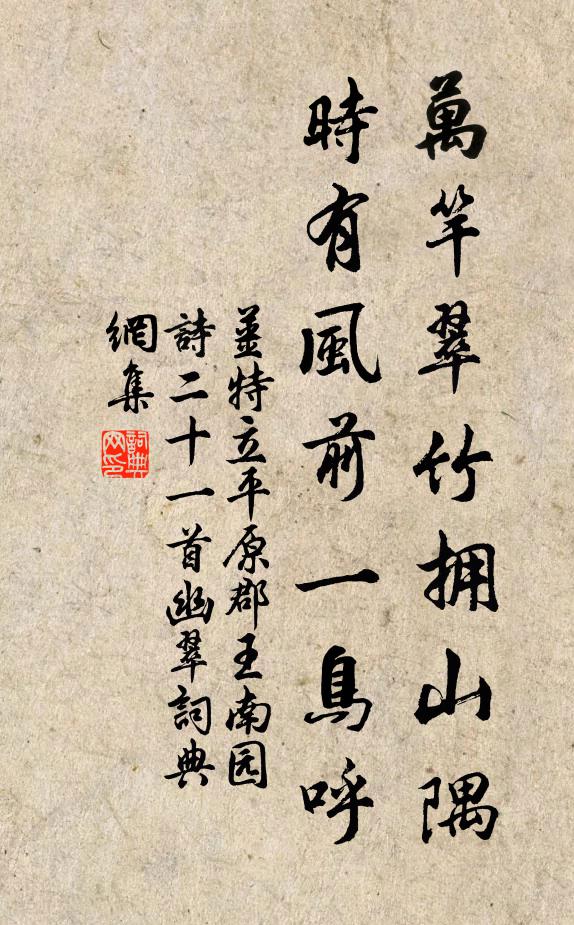 萬竿翠竹拥山隅
時有風前一鳥呼
薑特立平原郡王南园
詩二十一首幽翠詞典
網集
詞典网印